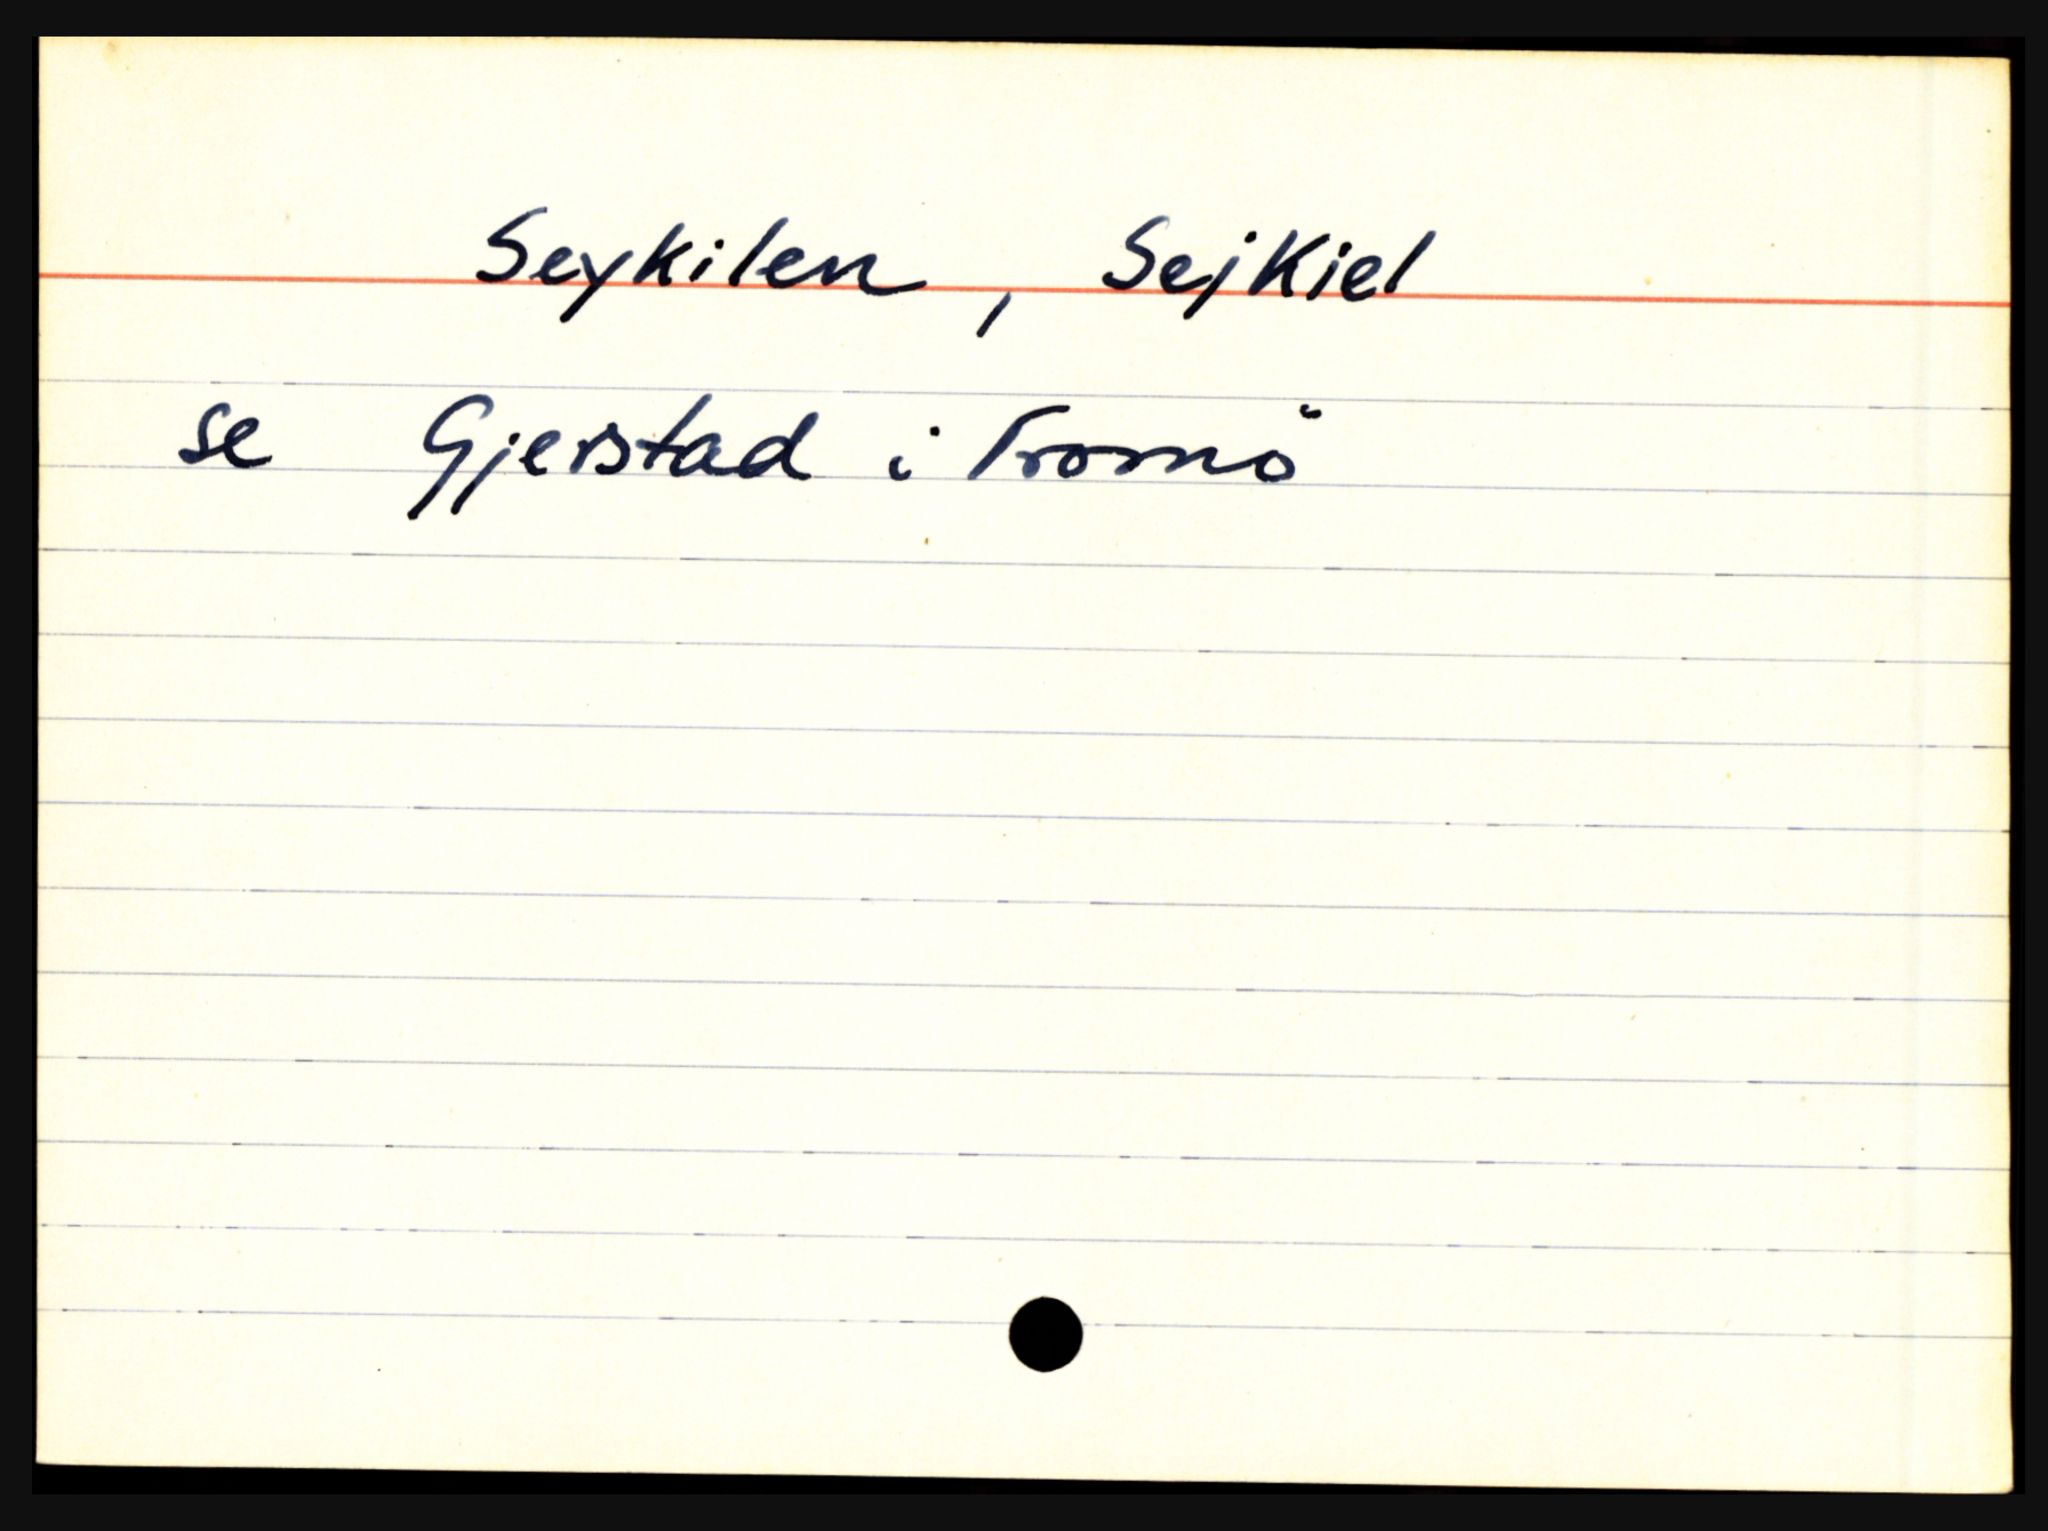 Seykilen, Sejkiel
se Gjerstad i Tromö